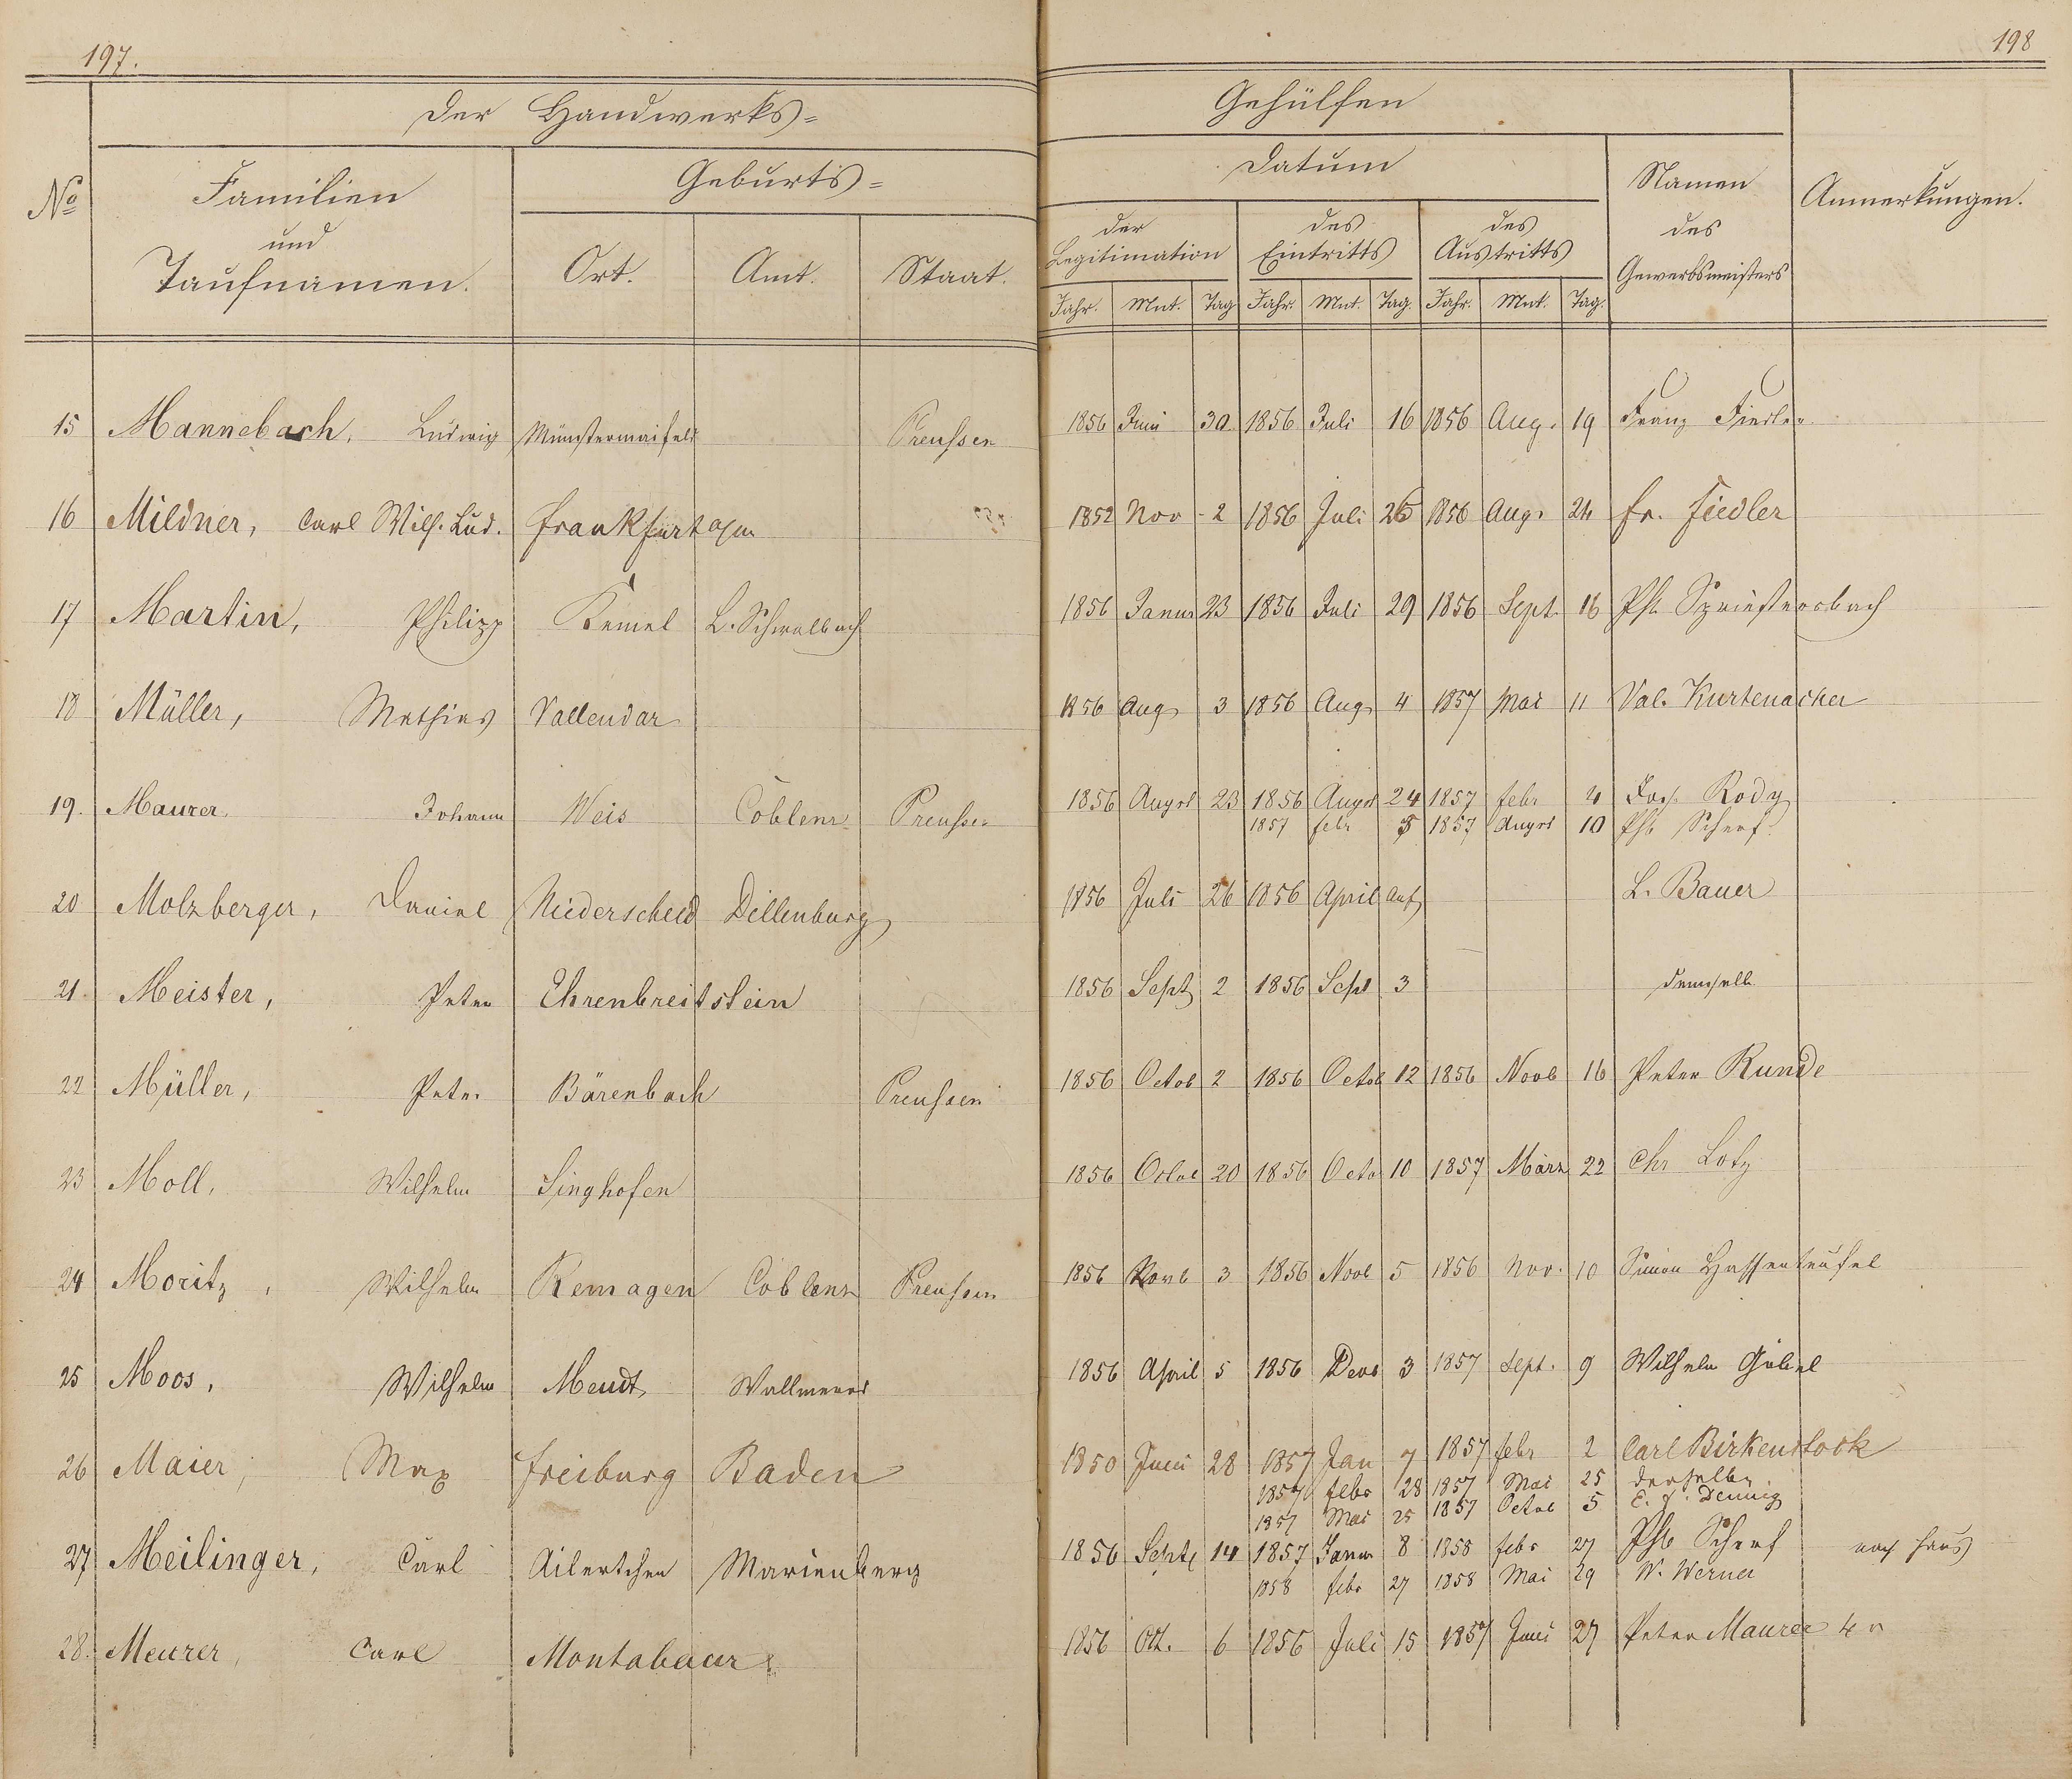 197.
198
Der Handwerks=
Gehülfen
No
Familien
und
Taufnamen.
Geburts=
Ort.
Amt.
Staat.
Datum
der
Legitimation
des
Eintritts
des
Austritts
Jahr. Mnt. Tag Jahr. Mnt. Tag. Jahr. Mnt. Tag.
Namen
des
Gewerbsmeisters
Anmerkungen.
15 Mannebach, Ludwig Münstermaifeld Preussen 1856 Juni 30 1856 Juli 16 1856 Aug. 19 Franz Fiedler
16 Mildner, Carl Wilh. Lud. Frankfurt a/m 1852 Nov 2 1856 Juli 26 1856 Aug. 24 Fr. Fiedler
17 Martin, Philipp Kemel L. Schwalbach 1856 Janur 23 1856 Juli 29 1856 Sept. 16 Ph. Spriestersbach
18 Müller, Mathias Vallendar 1856 Aug 3 1856 Aug 4 1857 Mai 11 Val. Kurtenacker
19. Maurer Johann Weis Coblenz Preussen 1856 Augst 23 1856 Augst 24 1857 febr 4 Jos. Rody
1857 febr 5 1857 Augst 10 Ph. Scherf
20 Molzberger, Daniel Niederscheld Dillenburg 1856 Juli 26 1856 April Anf L. Bauer
21. Meister, Peter Ehrenbreitstein 1856 Sept 2 1856 Sept 3 demselb.
22 Müller, Peter Bärenbach Preussen 1856 Octob 2 1856 Octob 12 1856 Novb 16 Peter Runde
23 Moll, Wilhelm Singhofen 1856 Octob 20 1856 Octo 10 1857 März 22 Chr Lotz
24 Moritz, Wilhelm Remagen Coblenz Preussen 1856 Novb 3 1856 Novb 5 1856 Nov. 10 Simon Hassenteufel
25 Moos, Wilhelm Meudt Wallmerod 1856 April 5 1856 Decb 3 1857 Sept. 9 Wilhelm Göbel
26 Maier, Max Freiburg Baden 1850 Juni 28 1857 Jan 7 1857 febr 2 Carl Birkenstock
1857 febr 28 1857 Mai 25 derselbe
1857 Mai 25 1857 Octob 5 E. J. Dennig
27 Meilinger, Carl Ailertchen Marienberg 1856 Septe 14 1857 Janur 8 1858 febr 27 Ph. Scherf nach Haus
1858 febr 27 1858 Mai 29 W. Werner
28. Meurer, Carl Montabaur 1856 Oct. 6 1856 Juli 15 1857 Juni 27 Peter Maurer